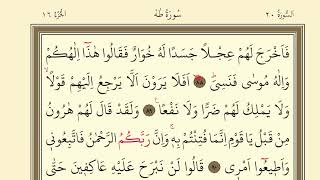 السُّورَةُ ٢٠ سُورَةُ طٰهٰ اَلْجُزْءُ ١٦
فَاَخْرَجَ لَهُمْ عِجْلًا جَسَدًا لَهُ خُوَارٌ فَقَالُوا هٰذَٓا اِلٰهُكُمْ
وَاِلٰهُ مُوسٰى فَنَسِيَ ٨٨ اَفَلَا يَرَوْنَ اَلَّا يَرْجِعُ اِلَيْهِمْ قَوْلًا
وَلَا يَمْلِكُ لَهُمْ ضَرًّا وَلَا نَفْعًا ٨٩ وَلَقَدْ قَالَ لَهُمْ هٰرُونُ
مِنْ قَبْلُ يَا قَوْمِ اِنَّمَا فُتِنْتُمْ بِهِ وَاِنَّ رَبَّكُمُ الرَّحْمٰنُ فَاتَّبِعُونِى
وَاَطِيعُٓوا اَمْرِى ٩٠ قَالُوا لَنْ نَبْرَحَ عَلَيْهِ عَاكِفِينَ حَتّٰى